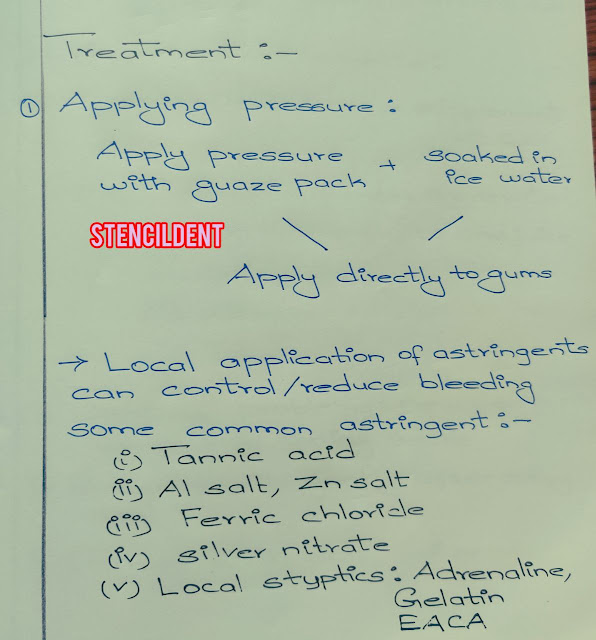 Treatment :-
① Applying pressure :
Apply pressure + soaked in
with guaze pack ice water
STENCILDENT
Apply directly to gums
→ Local application of astringents
can control/reduce bleeding
some common astringent :-
(i) Tannic acid
(ii) Al salt, Zn salt
(iii) Ferric chloride
(iv) silver nitrate
(v) Local styptics : Adrenaline,
Gelatin
EACA